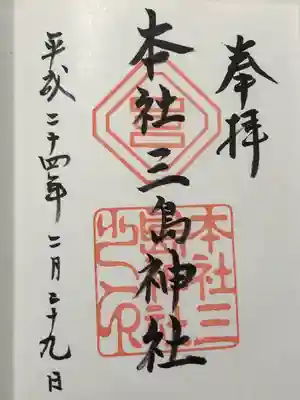 奉拝
本社三島神社
本社三島神社之印
平成二十四年二月二十九日